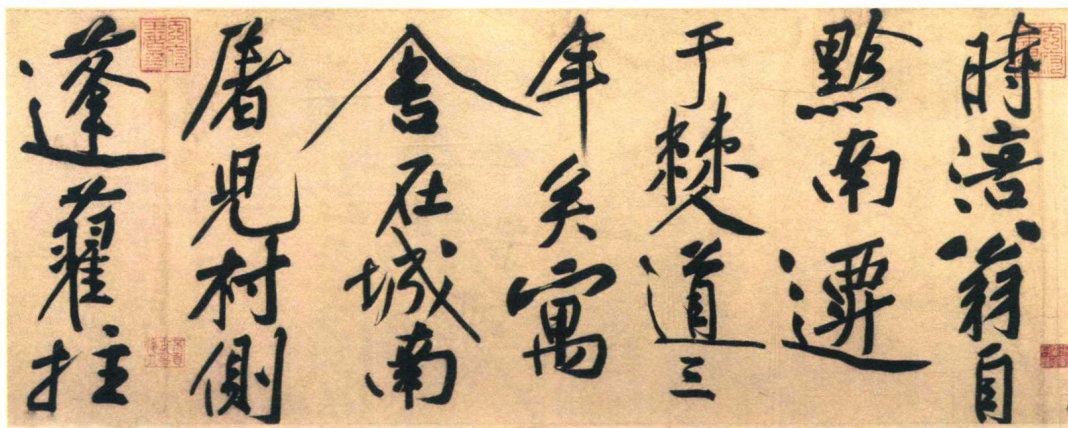 時涪翁自
黔南遷
于僰道三
年矣寓
舍在城南
屠兒村側
蓬藋拄